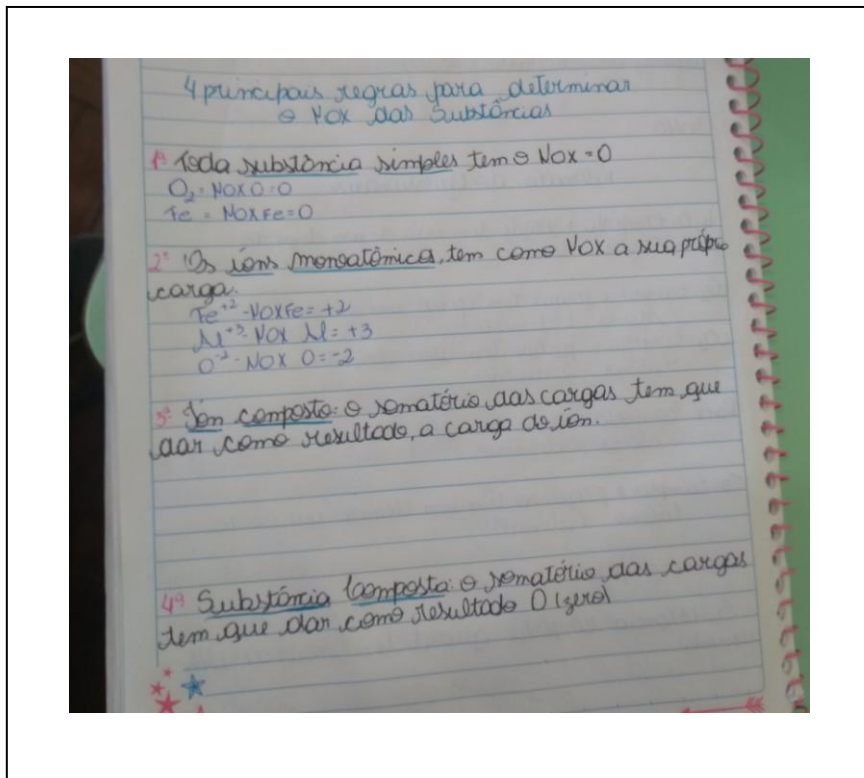 4 principais regras para determinar
o Nox das Substâncias
1ª Toda substância simples tem o Nox = 0
O₂ = NOX O = 0
Fe = NOX Fe = 0
2ª Os íons monoatômica, tem como Nox a sua própria
carga.
Fe⁺² - NOX Fe = +2
Al⁺³ - NOX Al = +3
O⁻² - NOX O = -2
3ª Íon composto: o somatório das cargas tem que
dar como resultado, a carga do íon.
4ª Substância Composta: o somatório das cargas
tem que dar como resultado 0 (zero)